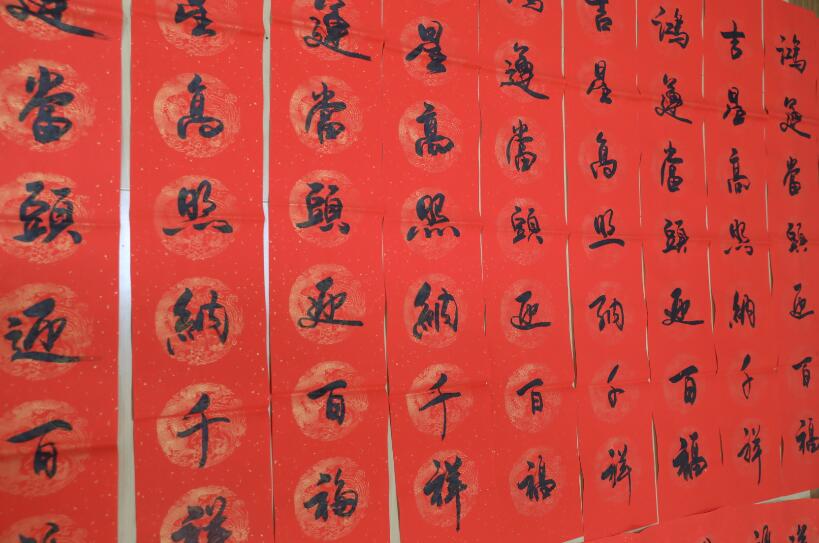 鴻運當頭迎百福
吉星高照納千祥
鴻運當頭迎百福
吉星高照納千祥
運當頭迎百福
星高照納千祥
運當頭迎百福
星高照納千祥
運當頭迎百